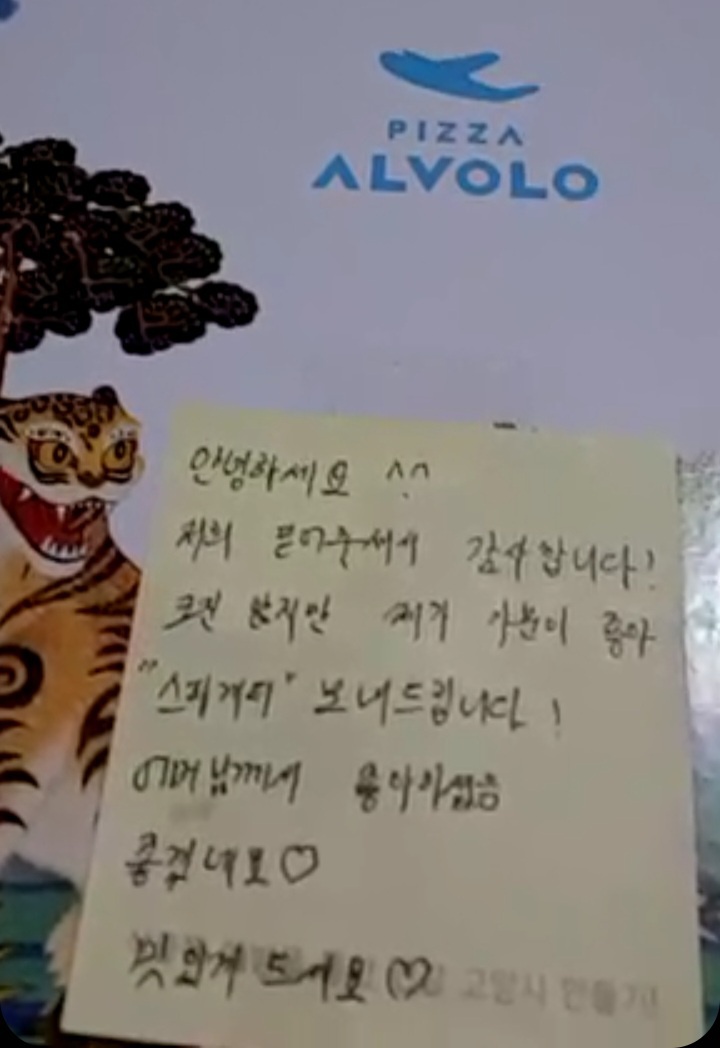 PIZZA
ALVOLO
안녕하세요 ^^
저희 믿어주셔서 감사합니다!
크진 않지만 제가 기분이 좋아
"스파게티" 보내드립니다!
어머님께서 좋아하셨음
좋겠네요♡
맛있게 드세요♡
고양시 만들기!